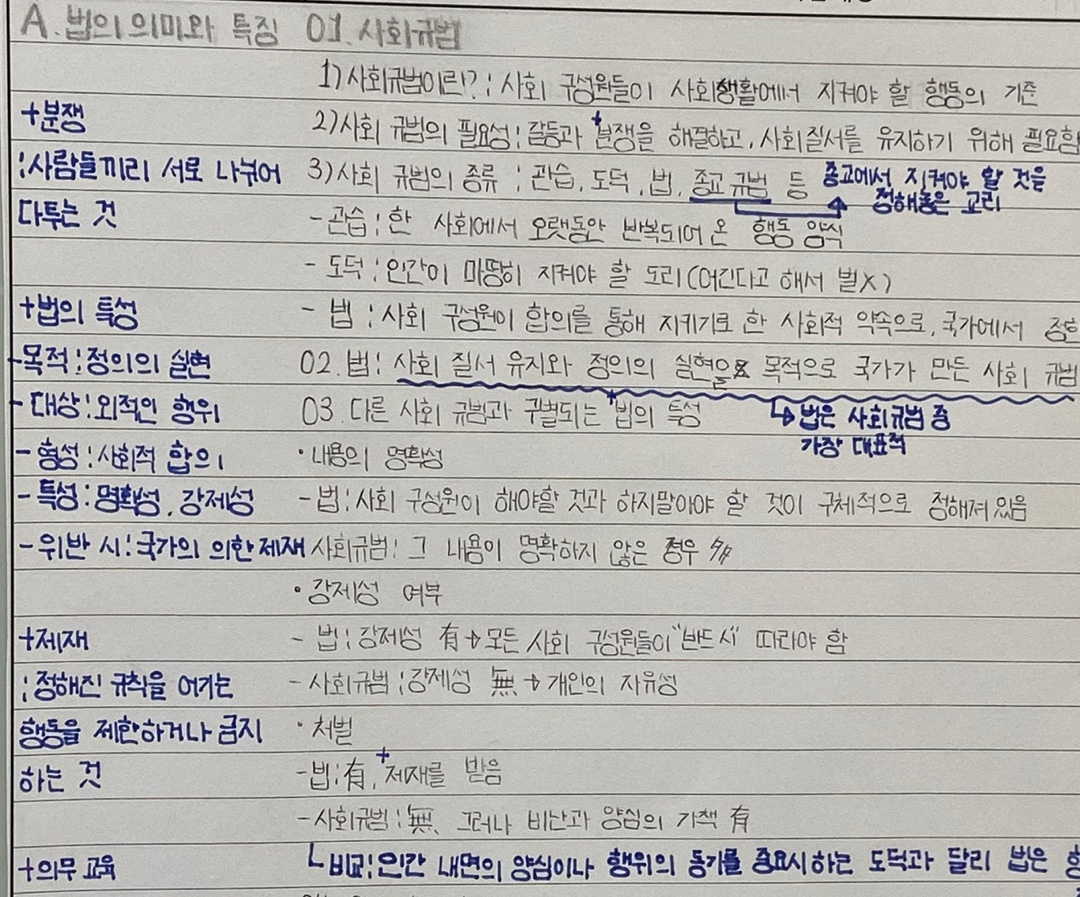 A. 법의 의미와 특징 01. 사회규범
1) 사회규범이란?: 사회 구성원들이 사회생활에서 지켜야 할 행동의 기준
+분쟁
2) 사회 규범의 필요성: 갈등과 +분쟁을 해결하고, 사회질서를 유지하기 위해 필요함
:사람들끼리 서로 나뉘어
3) 사회 규범의 종류 : 관습, 도덕, 법, 종교 규범 등
종교에서 지켜야 할 것을
정해놓은 교리
다투는 것
- 관습: 한 사회에서 오랫동안 반복되어 온 행동 양식
- 도덕: 인간이 마땅히 지켜야 할 도리(어긴다고 해서 벌X)
+법의 특성
- 법 : 사회 구성원이 합의를 통해 지키기로 한 사회적 약속으로, 국가에서 정한
-목적:정의의 실현
02. 법: 사회 질서 유지와 정의의 실현을 목적으로 국가가 만든 사회 규범
- 대상:외적인 행위
03. 다른 사회 규범과 구별되는 +법의 특성
↳법은 사회규범 중
가장 대표적
- 형성:사회적 합의
·내용의 명확성
- 특성:명확성, 강제성
- 법: 사회 구성원이 해야할 것과 하지말아야 할 것이 구체적으로 정해져 있음
- 위반 시:국가의 의한 제재
사회규범: 그 내용이 명확하지 않은 경우 多
• 강제성 여부
+제재
- 법: 강제성 有→모든 사회 구성원들이 "반드시" 따라야 함
:정해진 규칙을 어기는
- 사회규범:강제성 無→개인의 자유성
행동을 제한하거나 금지
· 처벌
하는 것
-법:有, +제재를 받음
-사회규범:無, 그러나 비난과 양심의 가책 有
+의무 교육
└비교:인간 내면의 양심이나 행위의 동기를 중요시하는 도덕과 달리 법은